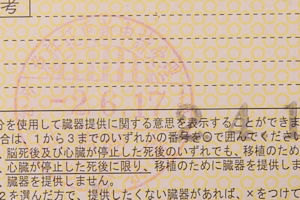 考
-2.6.17
分を使用して臓器提供に関する意思を表示することができま
合は、1から3までのいずれかの番号を○で囲んでくださ
、脳死後及び心臓が停止した死後のいずれでも、移植のため
、心臓が停止した死後に限り、移植のために臓器を提供しま
、臓器を提供しません。
2を選んだ方で、提供したくない臓器があれば、×をつけて